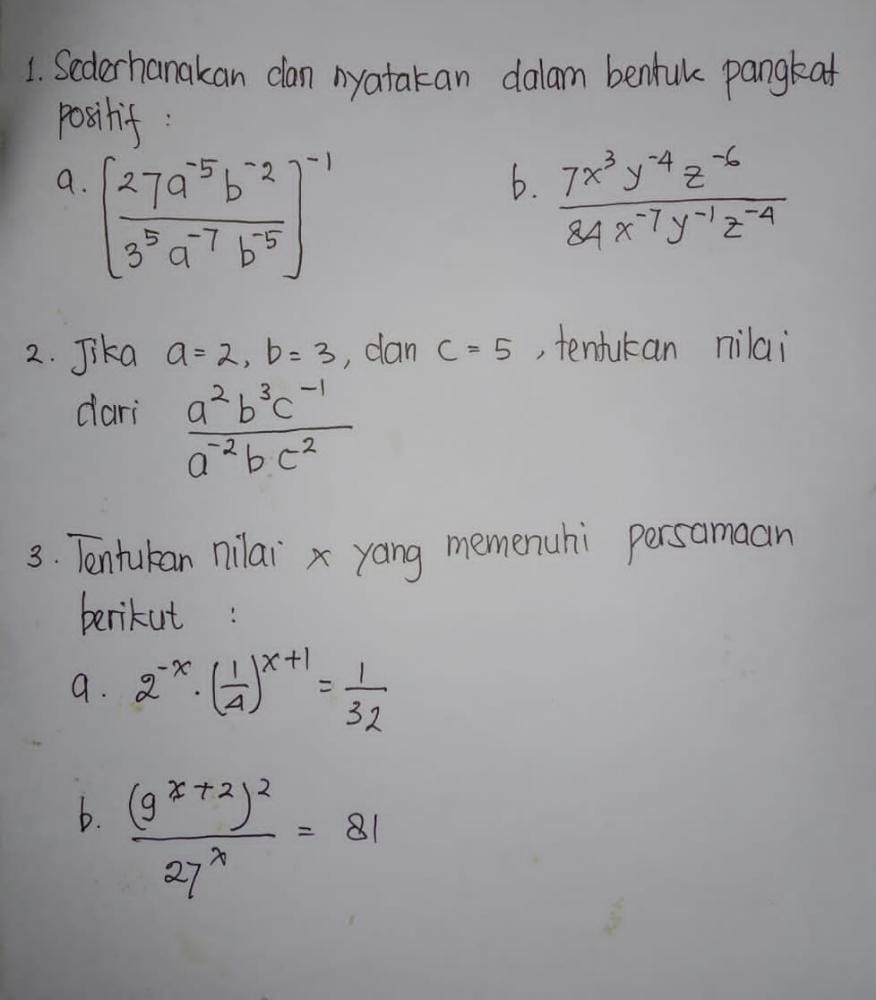 1. Sederhanakan dan nyatakan dalam bentuk pangkat
positif :
a. [27a⁻⁵b⁻² / 3⁵a⁻⁷b⁻⁵]⁻¹ b. 7x³y⁻⁴z⁻⁶ / 84x⁻⁷y⁻¹z⁻⁴
2. Jika a = 2, b = 3, dan c = 5, tentukan nilai
dari a²b³c⁻¹ / a⁻²bc²
3. Tentukan nilai x yang memenuhi persamaan
berikut :
a. 2⁻ˣ · (1/4)ˣ⁺¹ = 1/32
b. (9ˣ⁺²)² / 27ˣ = 81